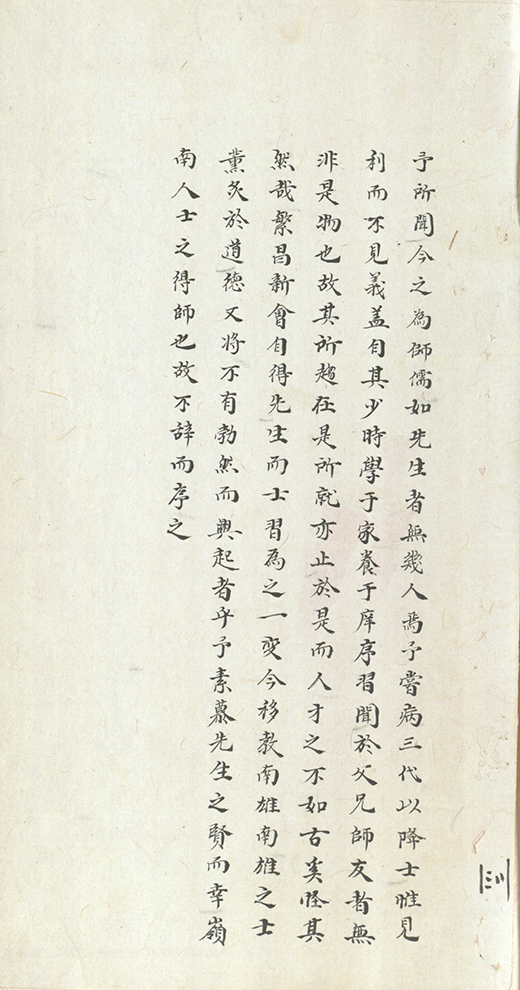 予所聞今之為師儒如先生者無幾人焉予嘗病三代以降士惟見
利而不見義盖自其少時學于家養于庠序習聞於父兄師友者無
非是物也故其所趨在是所就亦止於是而人才之不如古奚怪其
然哉繁昌新會自得先生而士習為之一變今移教南雄南雄之士
薰炙於道德又將不有勃然而興起者乎予素慕先生之賢而幸嶺
南人士之得師也故不辞而序之